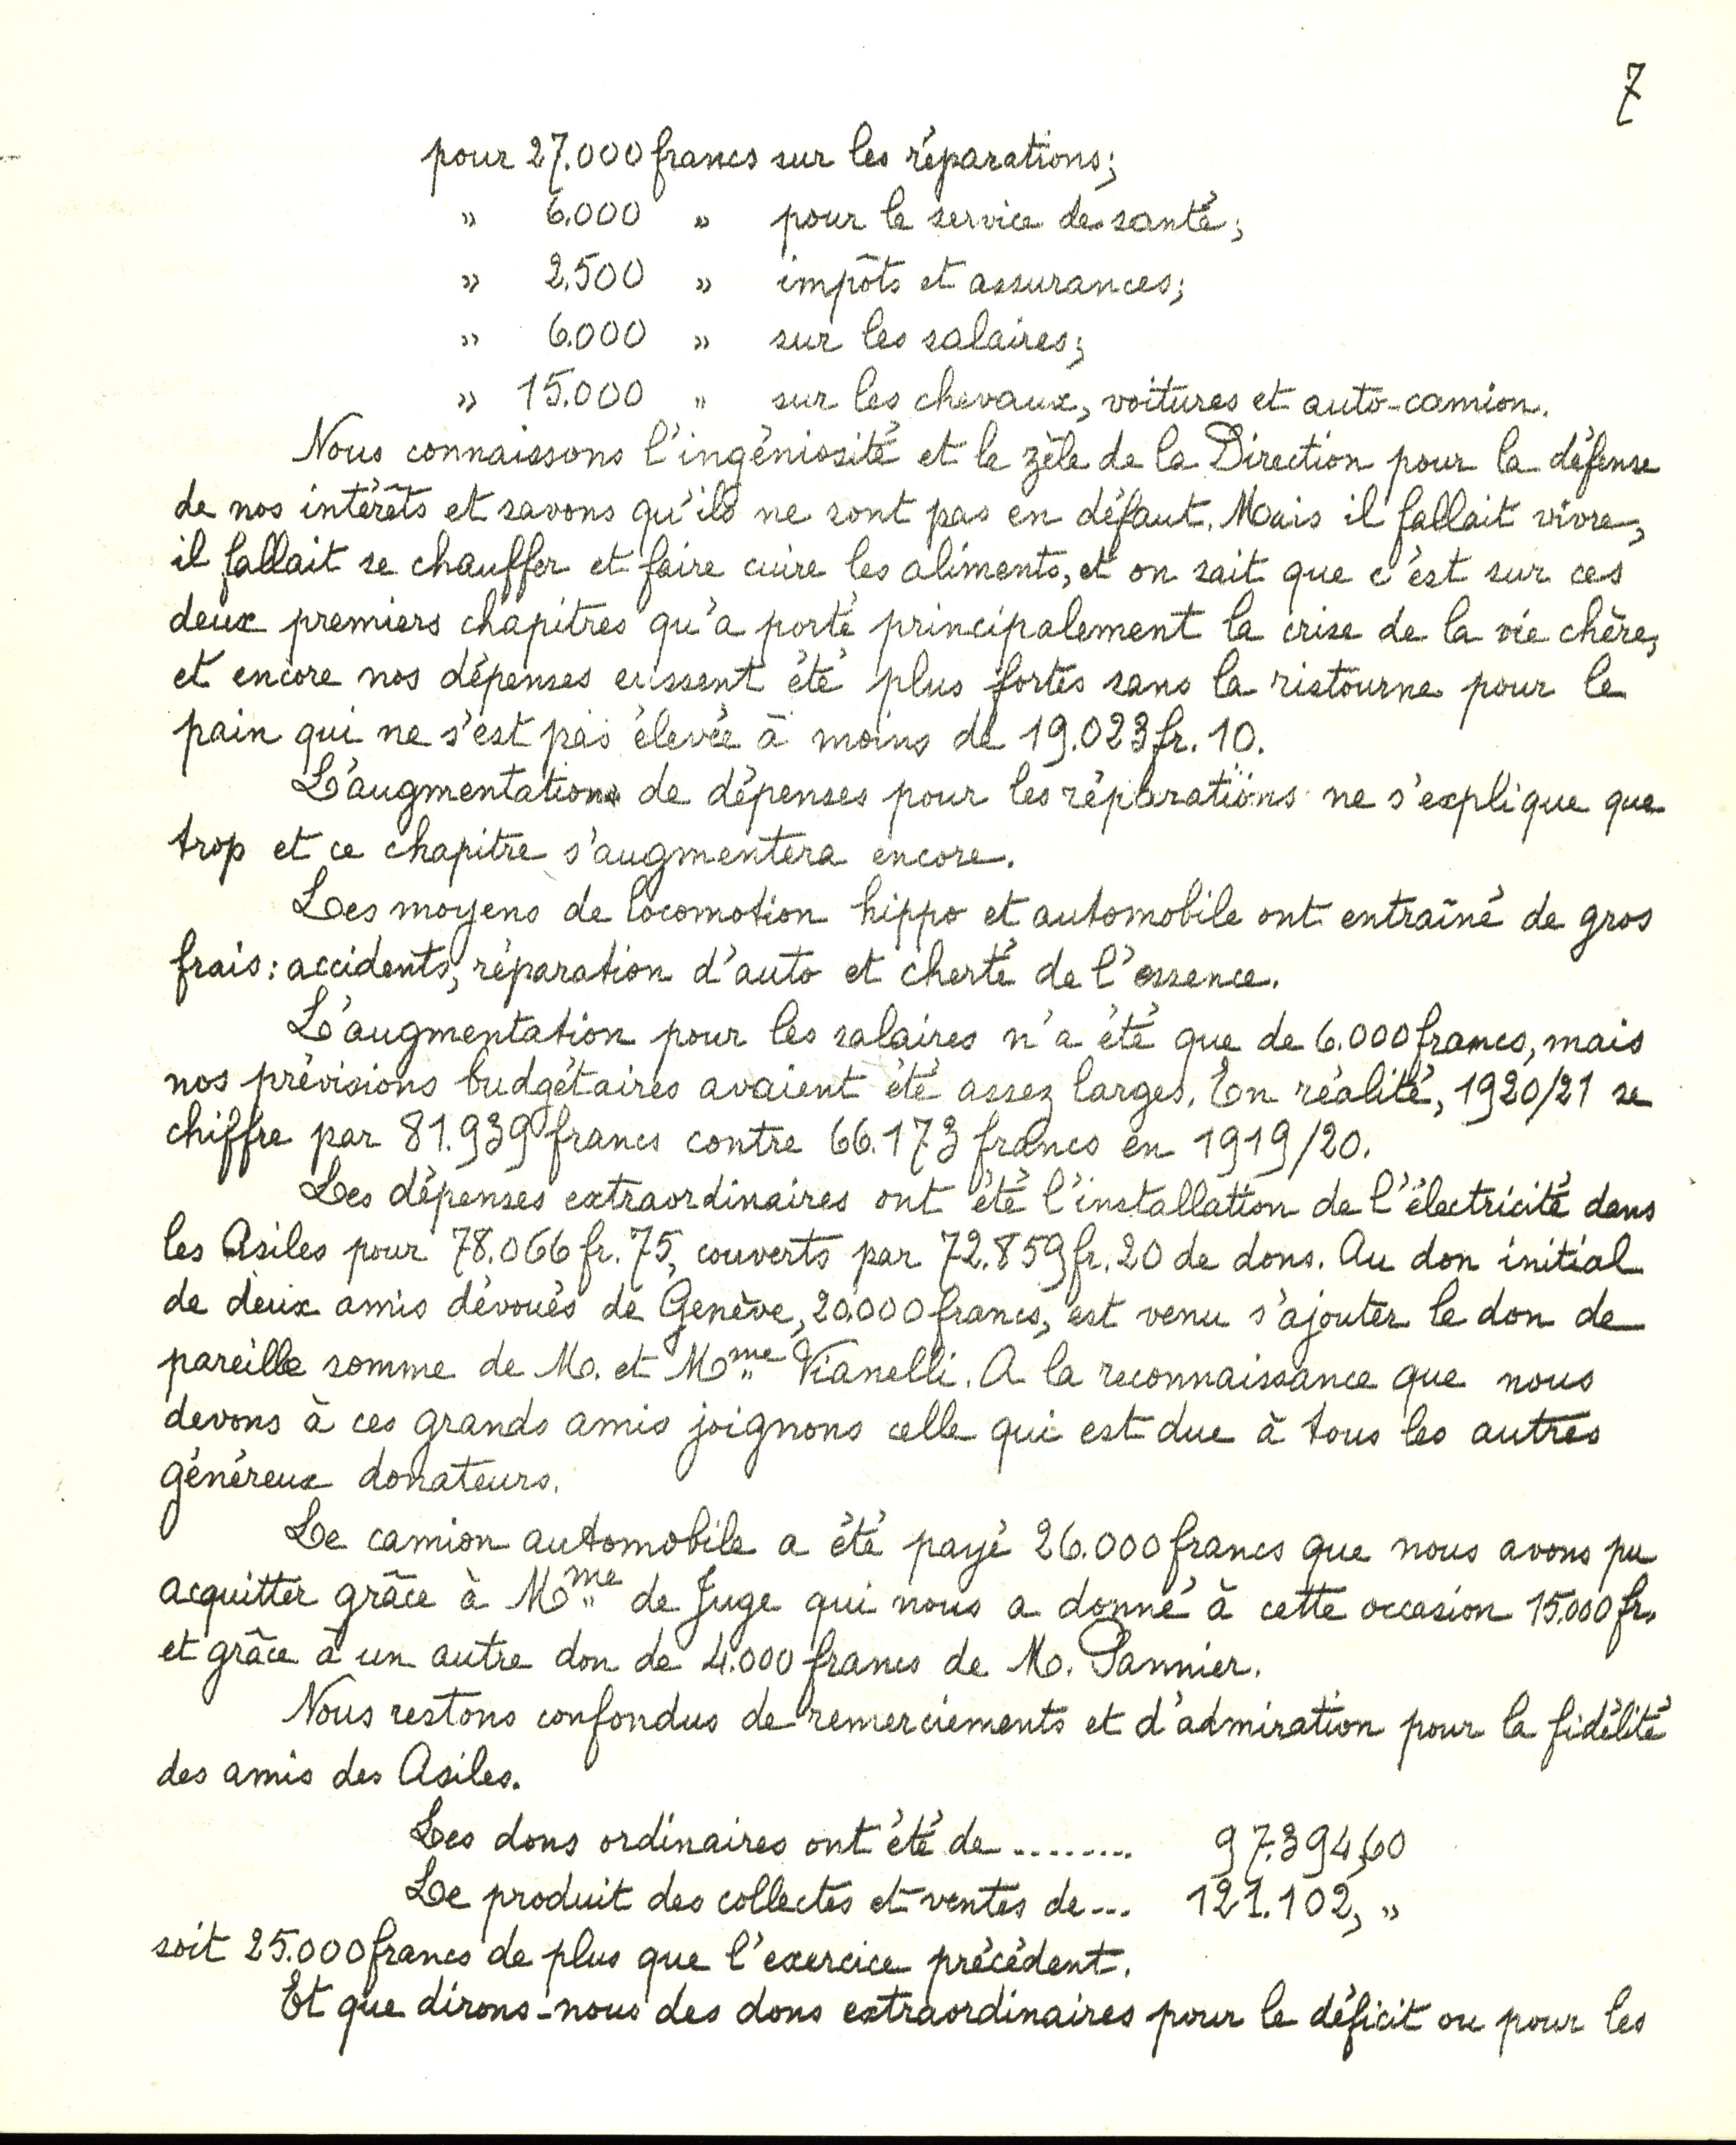 7
pour 27.000 francs sur les réparations;
" 6.000 " pour le service de santé;
" 2.500 " impôts et assurances;
" 6.000 " sur les salaires;
" 15.000 " sur les chevaux, voitures et auto-camion.
Nous connaissons l'ingéniosité et le zèle de la Direction pour la défense
de nos intérêts et savons qu'ils ne sont pas en défaut. Mais il fallait vivre,
il fallait se chauffer et faire cuire les aliments, et on sait que c'est sur ces
deux premiers chapitres qu'a porté principalement la crise de la vie chère,
et encore nos dépenses eussent été plus fortes sans la ristourne pour le
pain qui ne s'est pas élevée à moins de 19.023 fr. 10.
L'augmentation de dépenses pour les réparations ne s'explique que
trop et ce chapitre s'augmentera encore.
Les moyens de locomotion hippo et automobile ont entraîné de gros
frais: accidents, réparation d'auto et cherté de l'essence.
L'augmentation pour les salaires n'a été que de 6.000 francs, mais
nos prévisions budgétaires avaient été assez larges. En réalité, 1920/21 se
chiffre par 81.939 francs contre 66.173 francs en 1919/20.
Les dépenses extraordinaires ont été l'installation de l'électricité dans
les Asiles pour 78.066 fr. 75, couverts par 72.859 fr. 20 de dons. Au don initial
de deux amis dévoués de Genève, 20.000 francs, est venu s'ajouter le don de
pareille somme de M. et Mme Vianelli. A la reconnaissance que nous
devons à ces grands amis joignons celle qui est due à tous les autres
généreux donateurs.
Le camion automobile a été payé 26.000 francs que nous avons pu
acquitter grâce à Mme de Juge qui nous a donné à cette occasion 15.000 fr.
et grâce à un autre don de 4.000 francs de M. Pannier.
Nous restons confondus de remerciements et d'admiration pour la fidélité
des amis des Asiles.
Les dons ordinaires ont été de ........ 97.394,60
Le produit des collectes et ventes de ... 121.102, "
soit 25.000 francs de plus que l'exercice précédent.
Et que dirons-nous des dons extraordinaires pour le déficit ou pour les